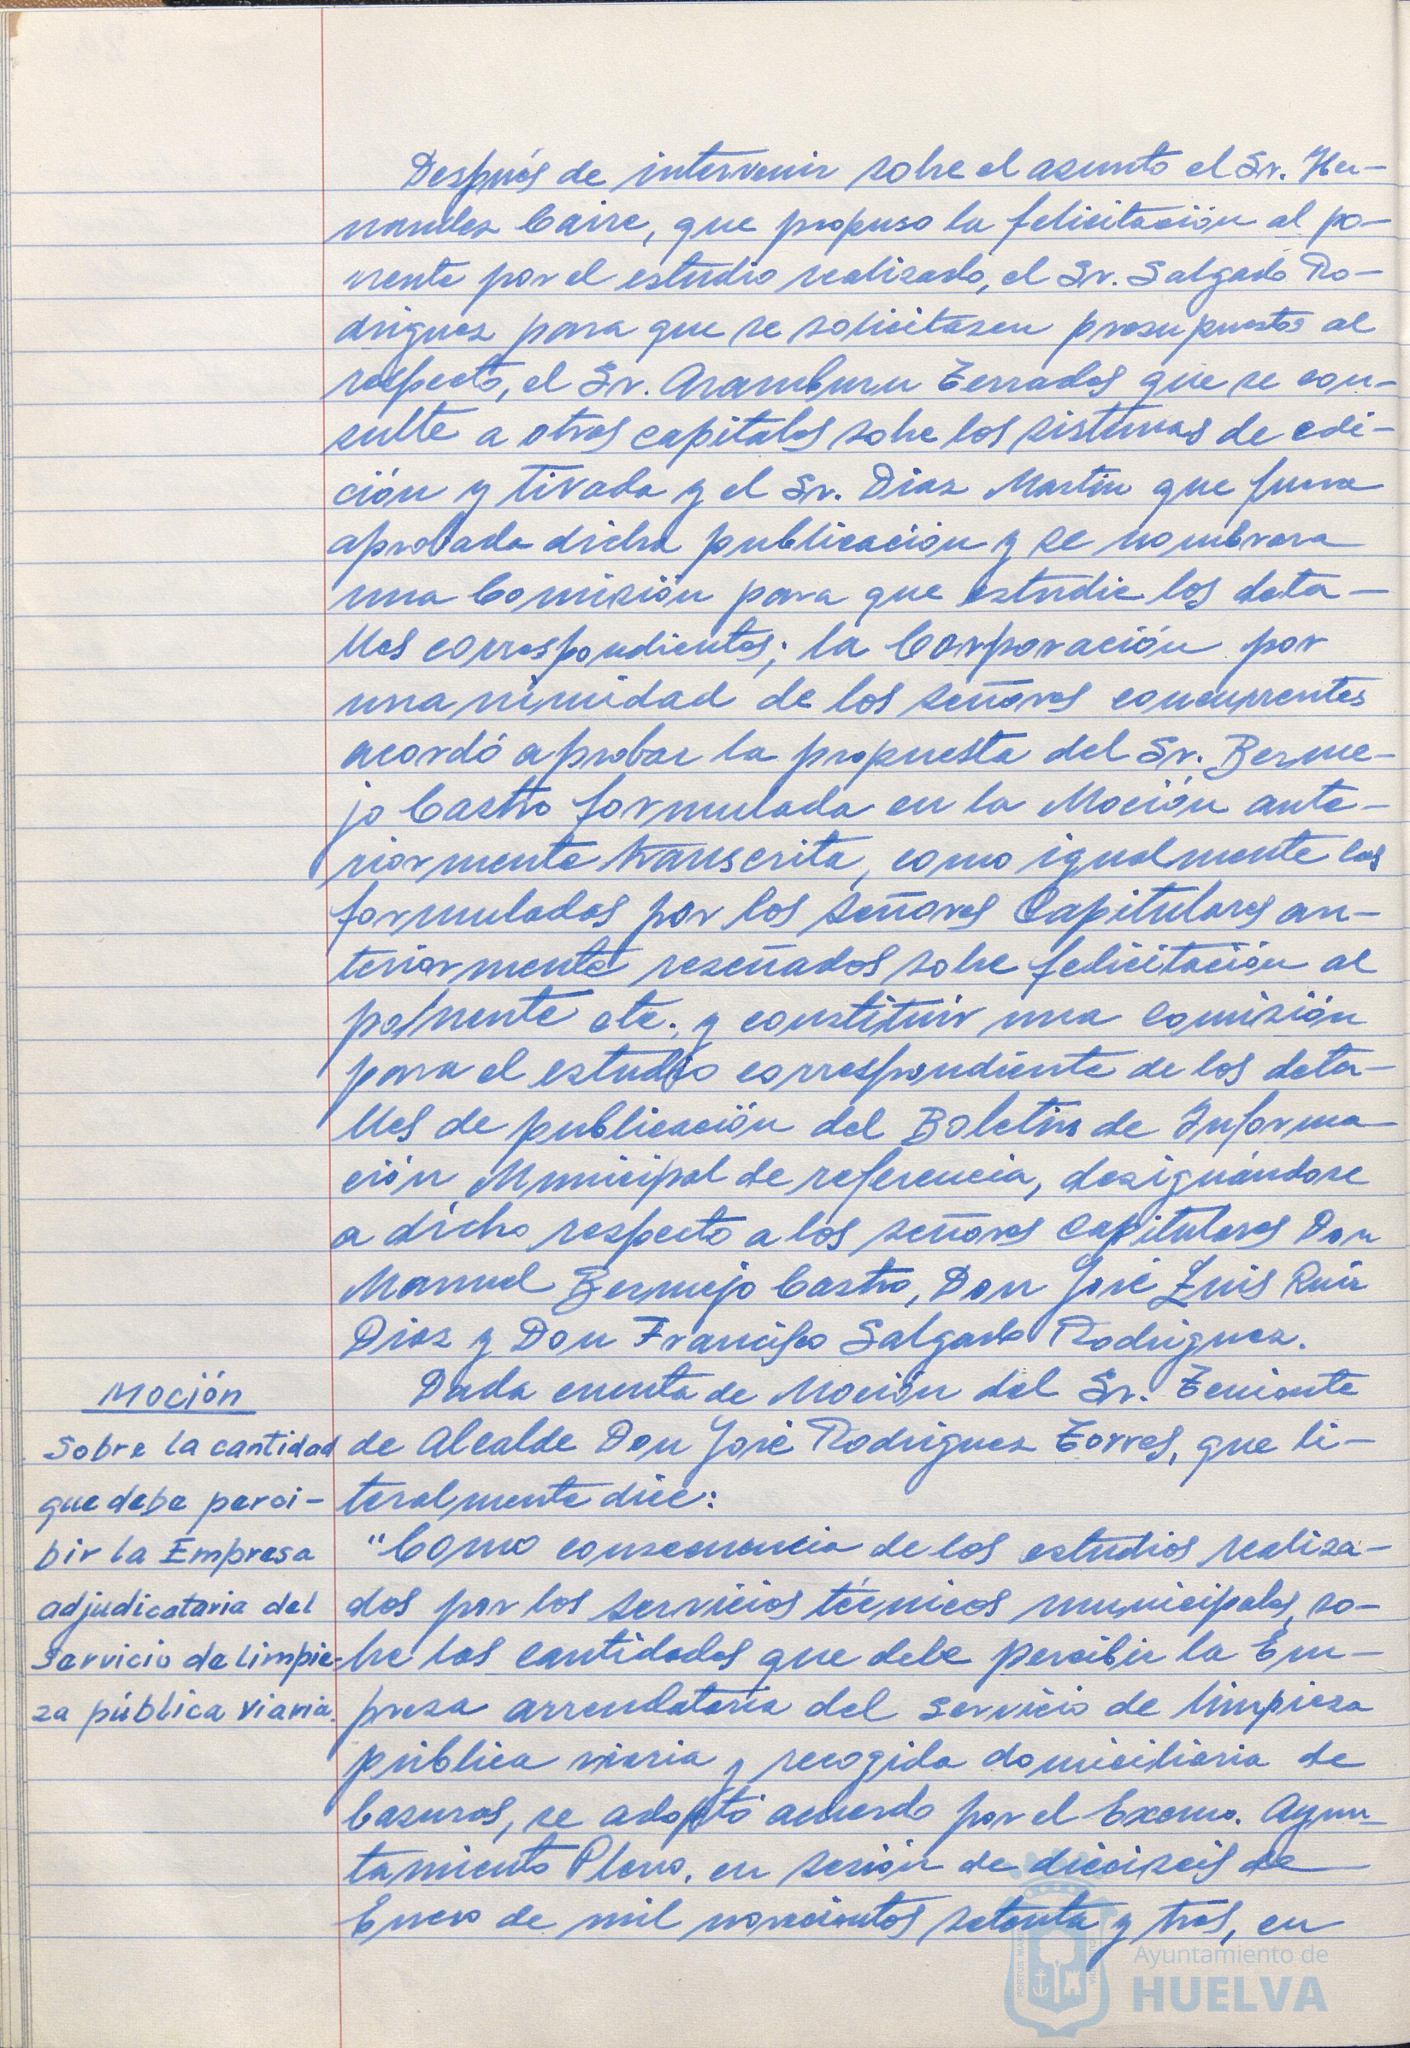 Después de intervenir sobre el asunto el Sr. Her-
nandez Caire, que propuso la felicitación al po-
nente por el estudio realizado, el Sr. Salgado Ro-
driguez para que se solicitasen presupuestos al
respecto, el Sr. Aramburu Terrades que se con-
sulte a otras capitales sobre los sistemas de edi-
ción y tirada y el Sr. Diaz Martin que fuera
aprobada dicha publicación y se nombrara
una Comisión para que estudie los deta-
lles correspondientes; la Corporación por
unanimidad de los señores concurrentes
acordó aprobar la propuesta del Sr. Berme-
jo Castro formulada en la Moción ante-
riormente transcrita, como igualmente las
formuladas por los señores Capitulares an-
teriormente reseñados sobre felicitación al
ponente etc. y constituir una comisión
para el estudio correspondiente de los deta-
lles de publicación del Boletin de Informa-
ción Municipal de referencia, designándose
a dicho respecto a los señores Capitulares Don
Manuel Bermejo Castro, Don José Luis Ruiz
Diaz y Don Francisco Salgado Rodriguez.
Moción
Sobre la cantidad
que debe perci-
bir la Empresa
adjudicataria del
Servicio de limpie-
za pública viaria.
Dada cuenta de Moción del Sr. Teniente
de Alcalde Don José Rodriguez Torres, que li-
teralmente dice:
"Como consecuencia de los estudios realiza-
dos por los servicios técnicos municipales, so-
bre las cantidades que debe percibir la Em-
presa arrendataria del servicio de limpieza
pública viaria y recogida domiciliaria de
basuras, se adoptó acuerdo por el Excmo. Ayun-
tamiento Pleno, en sesión de dieciseis de
Enero de mil novecientos setenta y tres, en
Ayuntamiento de
HUELVA